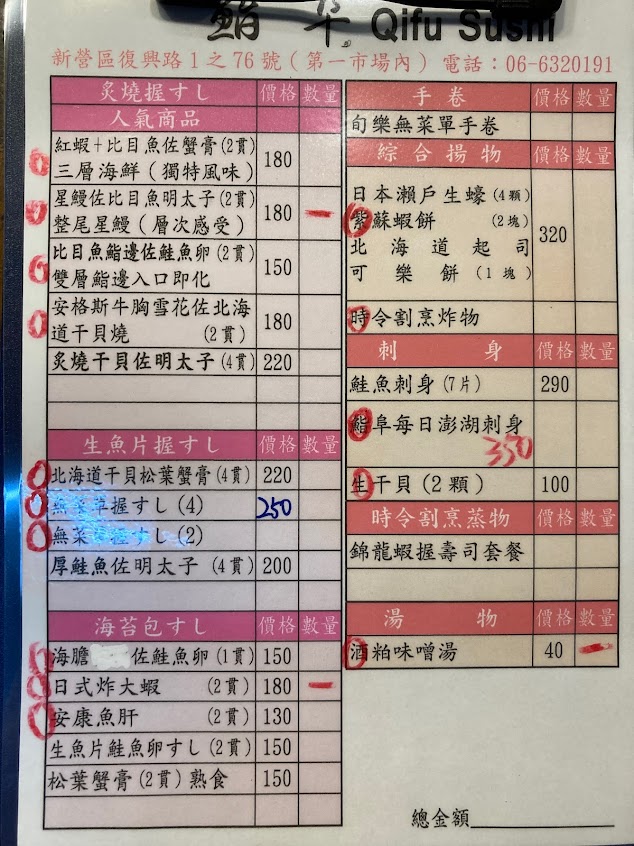 鮨阜 Qifu Sushi
新營區復興路1之76號(第一市場內) 電話：06-6320191
炙燒握すし 價格 數量
人氣商品
紅蝦+比目魚佐蟹膏(2貫)
三層海鮮(獨特風味) 180
星鰻佐比目魚明太子(2貫)
整尾星鰻(層次感受) 180
比目魚鮨邊佐鮭魚卵(2貫)
雙層鮨邊入口即化 150
安格斯牛胸雪花佐北海
道干貝燒 (2貫) 180
炙燒干貝佐明太子(4貫) 220
生魚片握すし 價格 數量
北海道干貝松葉蟹膏(4貫) 220
無菜單握すし(4) 250
無菜單握すし(2)
厚鮭魚佐明太子(4貫) 200
海苔包すし 價格 數量
海膽 佐鮭魚卵(1貫) 150
日式炸大蝦 (2貫) 180
安康魚肝 (2貫) 130
生魚片鮭魚卵すし(2貫) 150
松葉蟹膏(2貫)熟食 150
手卷 價格 數量
旬樂無菜單手卷
綜合揚物 價格 數量
日本瀨戶生蠔(4顆)
紫蘇蝦餅 (2塊)
北海道起司
可樂餅(1塊) 320
時令割烹炸物
刺身 價格 數量
鮭魚刺身(7片) 290
鮨阜每日澎湖刺身
350
生干貝(2顆) 100
時令割烹蒸物 價格 數量
錦龍蝦握壽司套餐
湯物 價格 數量
酒粕味噌湯 40
總金額